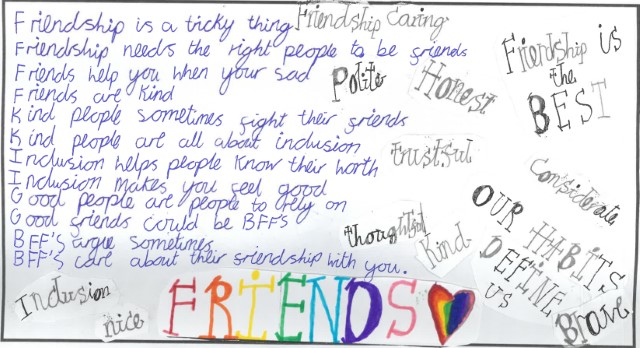 Friendship is a tricky thing
Friendship needs the right people to be friends
Friends help you when your sad
Friends are kind
Kind people sometimes fight their friends
Kind people are all about inclusion
Inclusion helps people know their worth
Inclusion makes you feel good
Good people are people to rely on
Good friends could be BFF's
BFF's argue sometimes
BFF's care about their friendship with you.
Friendship Caring
Polite
Honest
Friendship is
the
BEST
trustful
Considerate
thoughtful
Kind
OUR HABITS
DEFINE
US
Brave
Inclusion
nice
FRIENDS